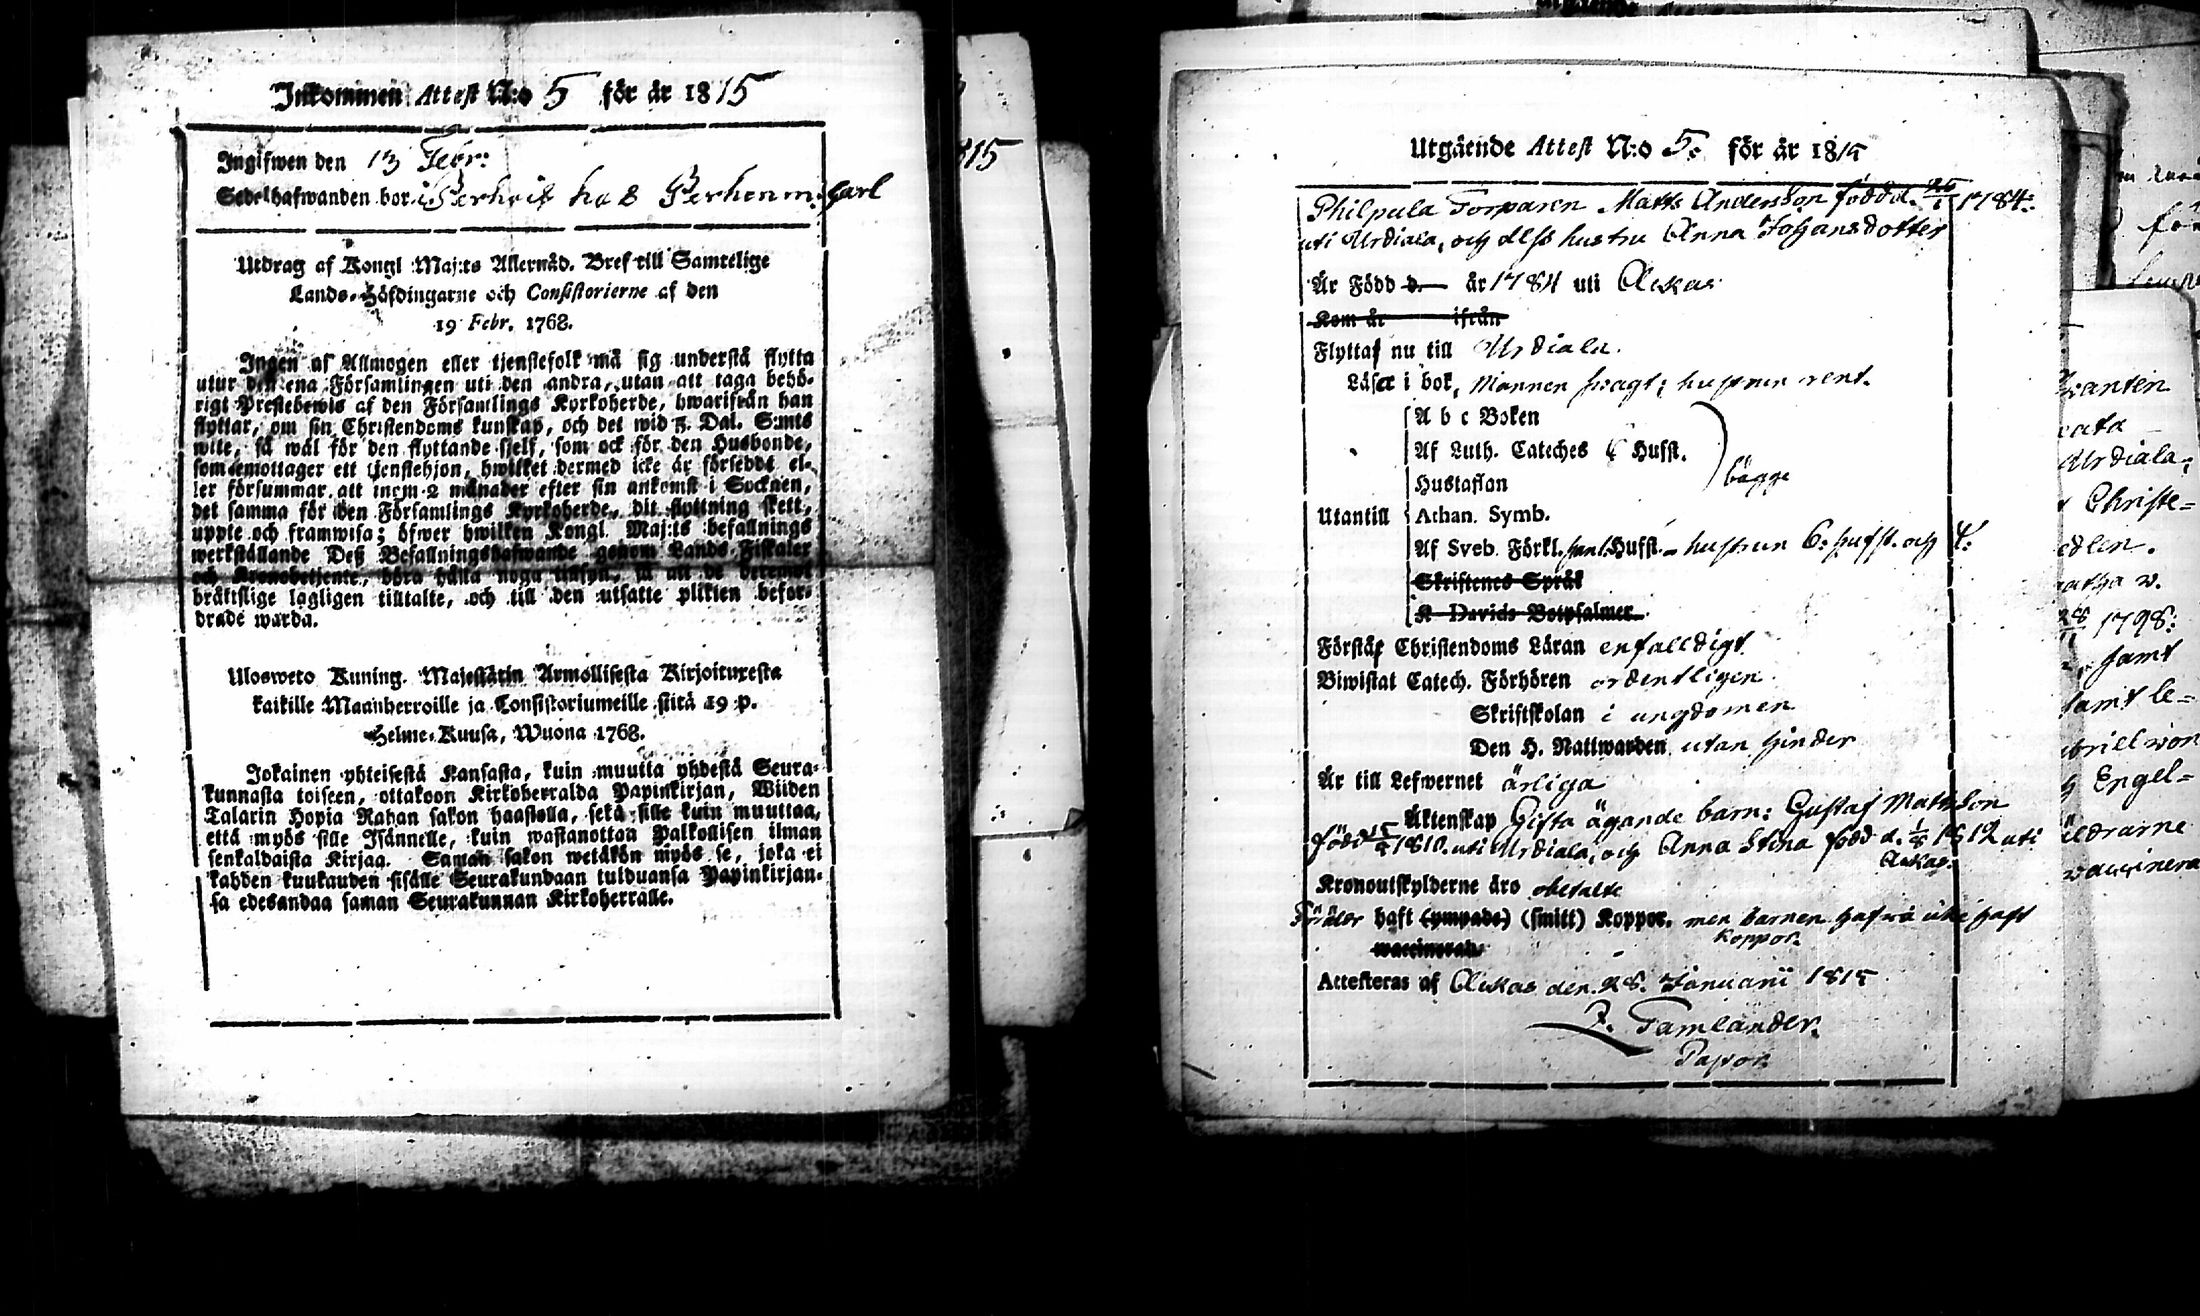 Inkommen Attest N:o 5 för år 1815
Ingifwen den 13 Febr:
Sedelhafwanden bor i hos
Utdrag af Kongl Maj:ts Allernåd. Bref till Samtelige
Lands-Höfdingarne och Consistorierne af den
19 Febr. 1768.
Ingen af Allmogen eller tjenstefolk må sig understå flytta
utur den ena Församlingen uti den andra, utan att taga behö-
rigt Prestebewis af den Församlings Kyrkoherde, hwarifrån han
flyttar, om sin Christendoms kunskap, och det wid 5. Dal. S:mts
wite, så wäl för den flyttande sjelf, som ock för den Husbonde,
som emottager ett tjenstehjon, hwilket dermed icke är försedde el-
ler försummar att inom 2 månader efter sin ankomst i Socknen,
det samma för den Församlings Kyrkoherde, dit flyttning skett,
uppte och framwisa; öfwer hwilken Kongl Maj:ts befallnings
werkställande Deß Befallningshafwande genom Lands-Fiskaler
och Kronobetjente, böra hålla noga tillsyn, så att de
bråttslige lagligen tilltalte, och till den utsatte plikten befor-
drade warda.
Ulosweto Kuning. Majestätin Armollisesta Kirjoituxesta
kaikille Maanherroille ja Consistoriumeille siitä 19 p.
Helme-Kuusa, Wuona 1768.
Jokainen yhteisestä Kansasta, kuin muutta yhdestä Seura-
kunnasta toiseen, ottakoon Kirkoherralda Papinkirjan, Wiiden
Talarin Hopia Rahan sakon haastolla, sekä sille kuin muuttaa,
että myös sille Isännelle, kuin wastanottaa Palkollisen ilman
senkaldaista Kirjaa. Saman sakon wetäkön myös se, joka ei
kahden kuukauden sisälle Seurakundaan tulduansa Papinkirjan-
sa edesandaa saman Seurakunnan Kirkoherralle.
815
Utgående Attest N:o 5: för år 1815
Philpula Torparen Matts Andersson född d. 1784:
uti Urdiala, och dess hustru Anna Johansdotter
Är Född d. år 1784 uti Ackas
Kom år ifrån
Flyttaf nu till Urdiala.
Läsa i bok, mannen swagt; hustrun rent.
A b c Boken
Af Luth. Cateches 6 Hufst.
Hustaflan
bägge
Utantill Athan. Symb.
Af Sveb. Förkl. samt Hufst. hustrun 6: hufst. och 4:
Skriftenes Språk
K Davids Botpsalmer
Förstår Christendoms Läran enfalldigt
Biwistat Catech. Förhören ordentligen
Skriftskolan i ungdomen
Den H. Nattwarden utan hinder
Är till Lefwernet ärliga
Äktenskap Gifta ägande barn: Gustaf Mattsson
född 1810. uti Urdiala, och Anna Stina född d. 1/8 1812 uti
Ackas.
Kronoutskylderne äro obetalte
haft (ympade) (smitt) Koppor. men barnen hafwa icke haft
Koppor.
waccinerade
Attesteras af Ackas den 28. Januarii 1815
Z. Tamlander.
Pastor.
1798: